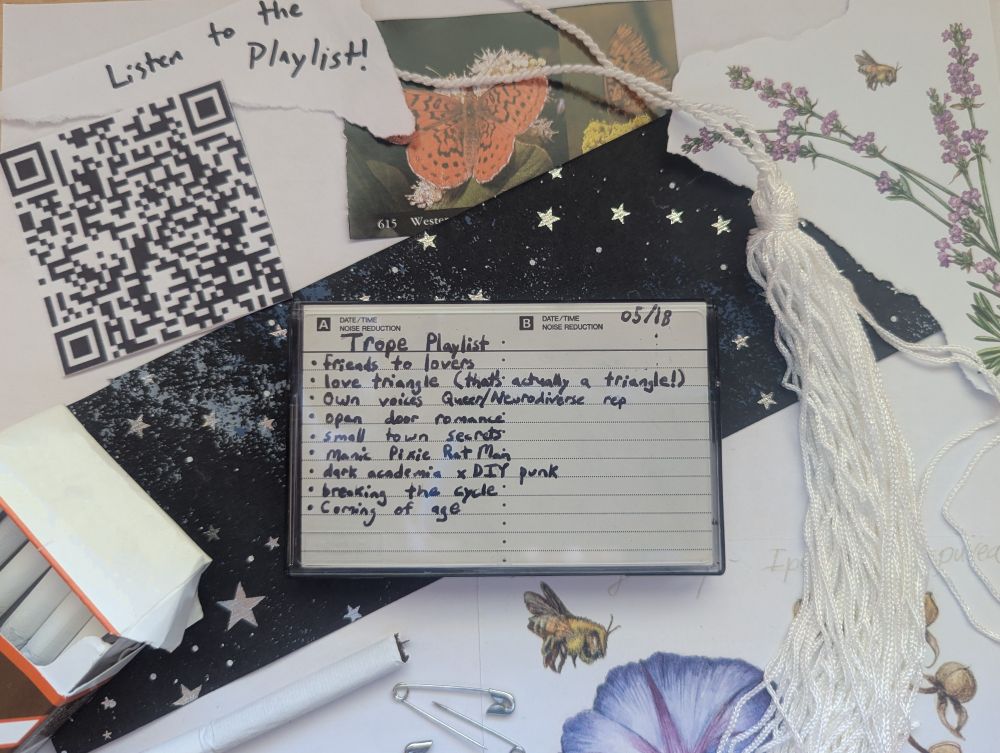 Listen to the
Playlist!
615 Wester
A DATE/TIME
NOISE REDUCTION
B DATE/TIME
NOISE REDUCTION
05/18
Trope Playlist
• friends to lovers
• love triangle (that's actually a triangle!)
• Own voices Queer/Neurodiverse rep
• open door romance
• small town secrets
• Manic Pixie Rat Man
• dark academia x DIY punk
• breaking the cycle
• Coming of age